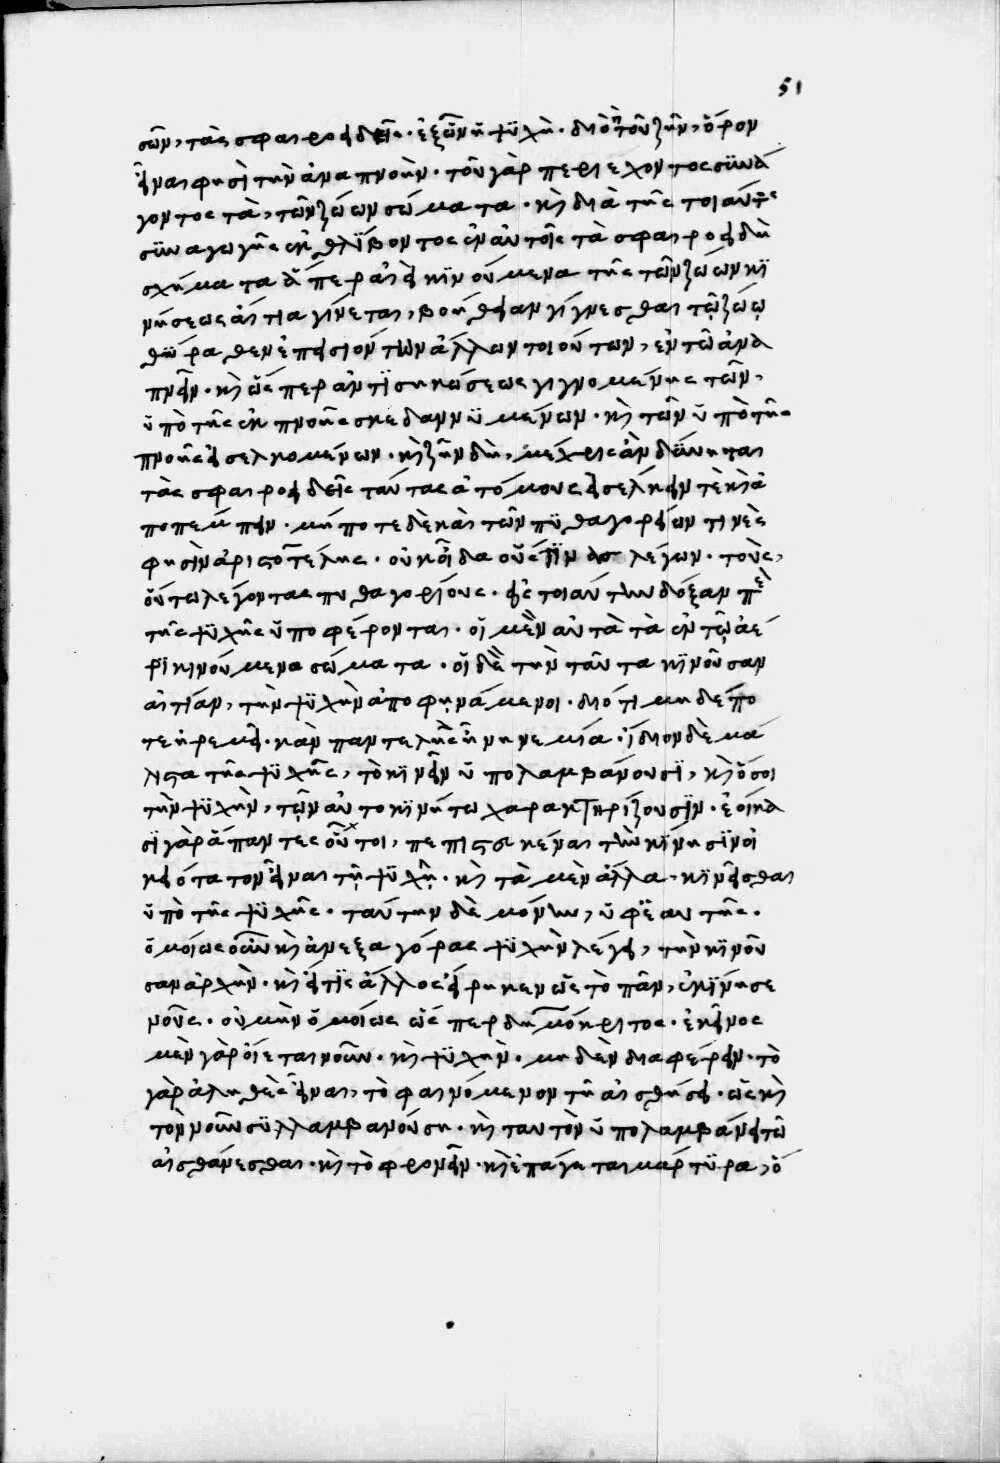 51
σῶν, τὰς σφαιροειδεῖς· ἐξ ὧν ἡ ψυχή. διὸ τοῦ ζῆν, ὅρον
εἶναι φησὶ τὴν ἀναπνοὴν. τοῦ γὰρ περιέχοντος συνά
γοντος τὰ, τῶν ζώων σώματα. καὶ διὰ τῆς τοιαύτης
συναγωγῆς ἐκθλίβοντος ἐν αὐτοῖς τὰ σφαιροειδῆ
σχήματα ἅπερ ἀεὶ κινούμενα τῆς τῶν ζώων κι
νήσεως αἴτια γίνεται, βοήθειαν γίγνεσθαι τῷ ζώῳ
θύραθεν ἐπεισιόντων ἄλλων τοιούτων, ἐν τῷ ἀνα
πνεῖν. καὶ ὥσπερ ἀντισηκώσεως γιγνομένης τῶν,
ὑπὸ τῆς ἐκπνοῆς σκεδαννυμένων. καὶ τῶν ὑπὸ τῆς
πνοῆς εἰσελκομένων. καὶ ζῆν δὴ, μέχρις ἂν δύνηται
τὰς σφαιροειδεῖς ταύτας ἀτόμους εἰσέλκειν τὲ καὶ ἀ
ποπέμπειν. μήποτε δὲ καὶ τῶν πυθαγορείων τινὲς
φησὶν ἀριστοτέλης. οὐκ οἶδα οὕστιν λέγων. τοὺς,
οὕτω λέγοντας πυθαγορείους. εἰς τοιαύτην δόξαν περὶ
τῆς ψυχῆς ὑποφέρονται. οἱ μὲν αὐτὰ τὰ ἐν τῷ ἀέ
ρι κινούμενα σώματα. οἱ δὲ τὴν ταῦτα κινοῦσαν
αἰτίαν, τὴν ψυχὴν ἀποφηνάμενοι. διότι μηδέπο
τε ἠρεμεῖ. κἂν παντελὴς ᾖ νηνεμία. ἴδιον δὲ μά
λιστα τῆς ψυχῆς, τὸ κινεῖν ὑπολαμβάνουσι, καὶ ὅσοι
τὴν ψυχὴν, τῷ αὐτοκινήτω χαρακτηρίζουσιν. ἐοίκα
σι γὰρ ἅπαντες οὗτοι, πεπιστευκέναι τὴν κίνησιν οἰ
κειότατον εἶναι τῇ ψυχῇ. καὶ τὰ μὲν ἄλλα κινεῖσθαι
ὑπὸ τῆς ψυχῆς. ταύτην δὲ μόνην, ὑφ' ἑαυτῆς.
ὁμοίως οὖν καὶ ἀνεξαγόρας ψυχὴν λέγει, τὴν κινοῦ
σαν ἀρχὴν. καὶ εἴ τις ἄλλος εἴρηκεν ὡς τὸ πᾶν, ἐκίνησε
νοῦς. οὐ μὴν ὁμοίως ὥσπερ δημόκριτος. ἐκεῖνος
μὲν γὰρ οἴεται νοῦν. καὶ ψυχὴν. μηδὲν διαφέρειν. τὸ
γὰρ ἀληθὲς εἶναι, τὸ φαινόμενον τῇ αἰσθήσει. ὡς καὶ
τὸν νοῦν συλλαμβανούσῃ. καὶ ταυτὸν ὑπολαμβάνει τῶ
αἰσθάνεσθαι. καὶ τὸ φρονεῖν. καὶ ἐπάγεται μάρτυρα, ὅ